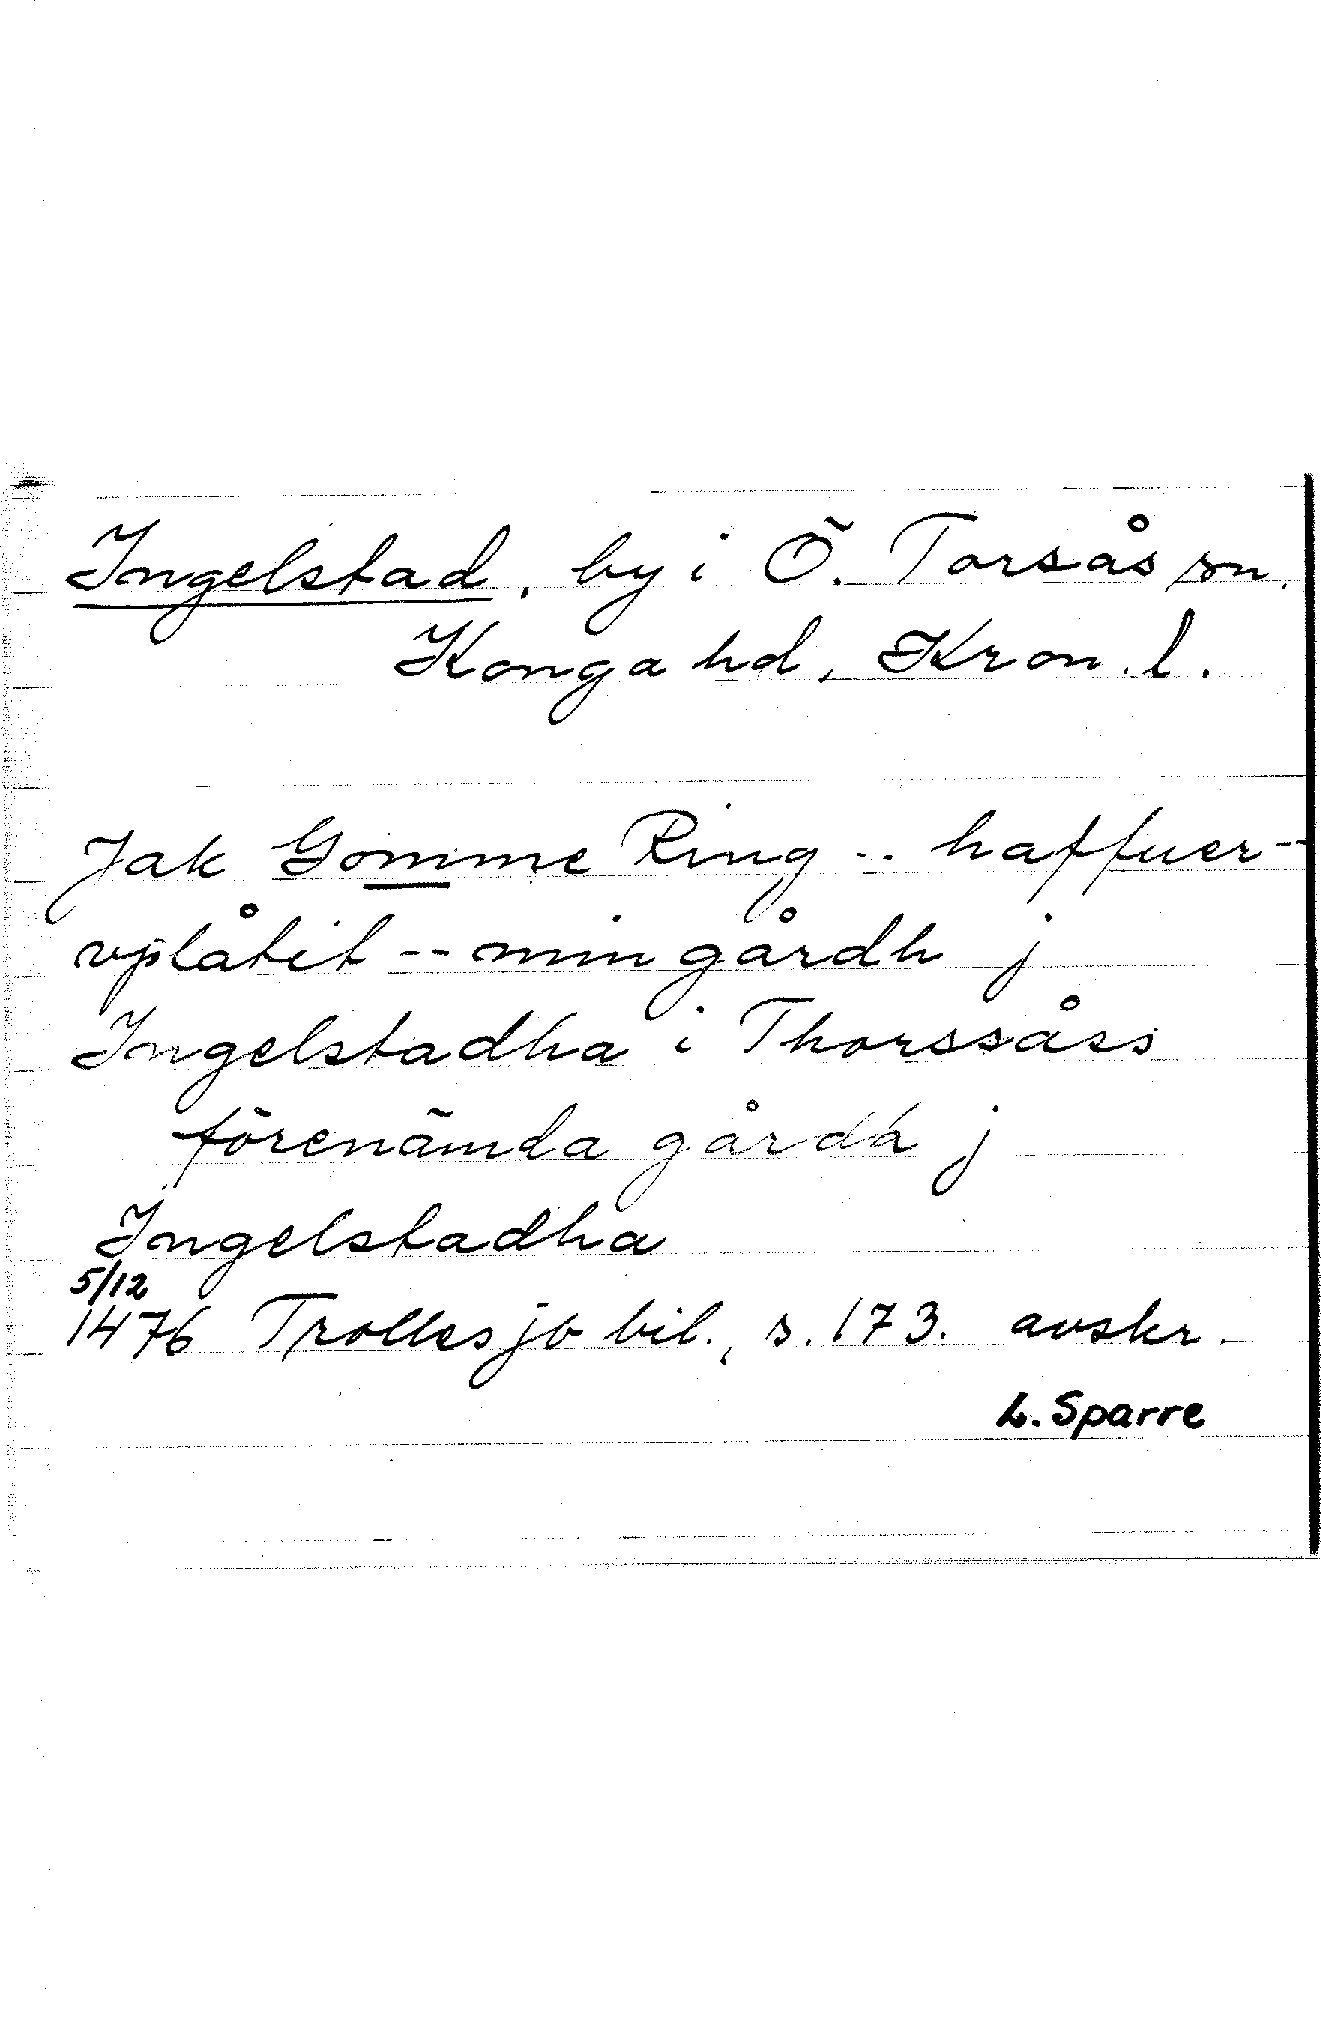 Ingelstad, by i Ö. Torsås sn,
Konga hd, Kron. l.
Jak Gomme Ring -- haffuer--
vplåtit -- min gårdh j
Ingelstadha i Thorssåss
förenämda gårdh j
Ingelstadha
5/12
1476 Trollesjö bil., s. 173. avskr.
L. Sparre